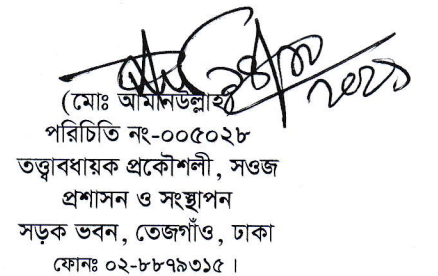 (মোঃ আমানউল্লাহ)
পরিচিতি নং-০০৫০২৮
তত্ত্বাবধায়ক প্রকৌশলী, সওজ
প্রশাসন ও সংস্থাপন
সড়ক ভবন, তেজগাঁও, ঢাকা
ফোনঃ ০২-৮৮৭৯৩১৫।